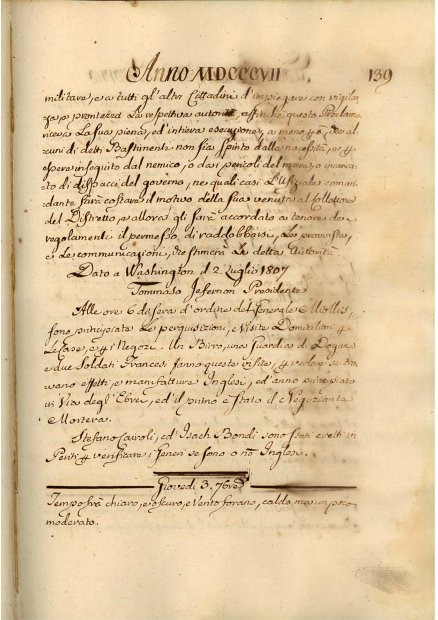 Anno MDCCCVII 139
militare, e a tutti gl'altri Cittadini d'impiegare con vigilan
za, e prontezza la rispettiva autorità, affinchè questo Proclama
riceva la sua piena, ed intiera esecuzione, a meno che al
cuni di detti Bastimenti non sia spinto dalla necessità, e p
essere inseguito dal nemico, o dai pericoli del mare, o incarica
to di dispacci del governo, ne quali casi l'Ufiziale coman
dante farà costare il motivo della sua venuta al Collettore
del Distretto, e allora gli sarà accordato a tenore de
regolamenti il permesso di raddobbarsi, le provviste,
e le comunicazioni, che stimerà la detta Autorità.
Dato a Washington il 2. Luglio 1807
Tommaso Jefernon Presidente
Alle ore 6 di sera d'ordine del Generale Miollis,
sono principiate le perquisizioni, e Visite Domiciliari p
le Case, e p i Negozi. Un Birro, una Guardia di Dogana
e due Soldati Francesi fanno queste visite, p vedere se tro
vano effetti, e manifatture Inglesi, ed anno principiato
in Via degl'Ebrei, ed il primo è stato il Negoziante
Morteva.
Stefano Cairoli, ed Isach Bondi sono stati eletti in
Periti p verificare i Generi se sono o nò Inglesi.
Giovedi 3. 7bre
Tempo frà chiaro, e oscuro, e Vento forano, caldo ma un poco
moderato.